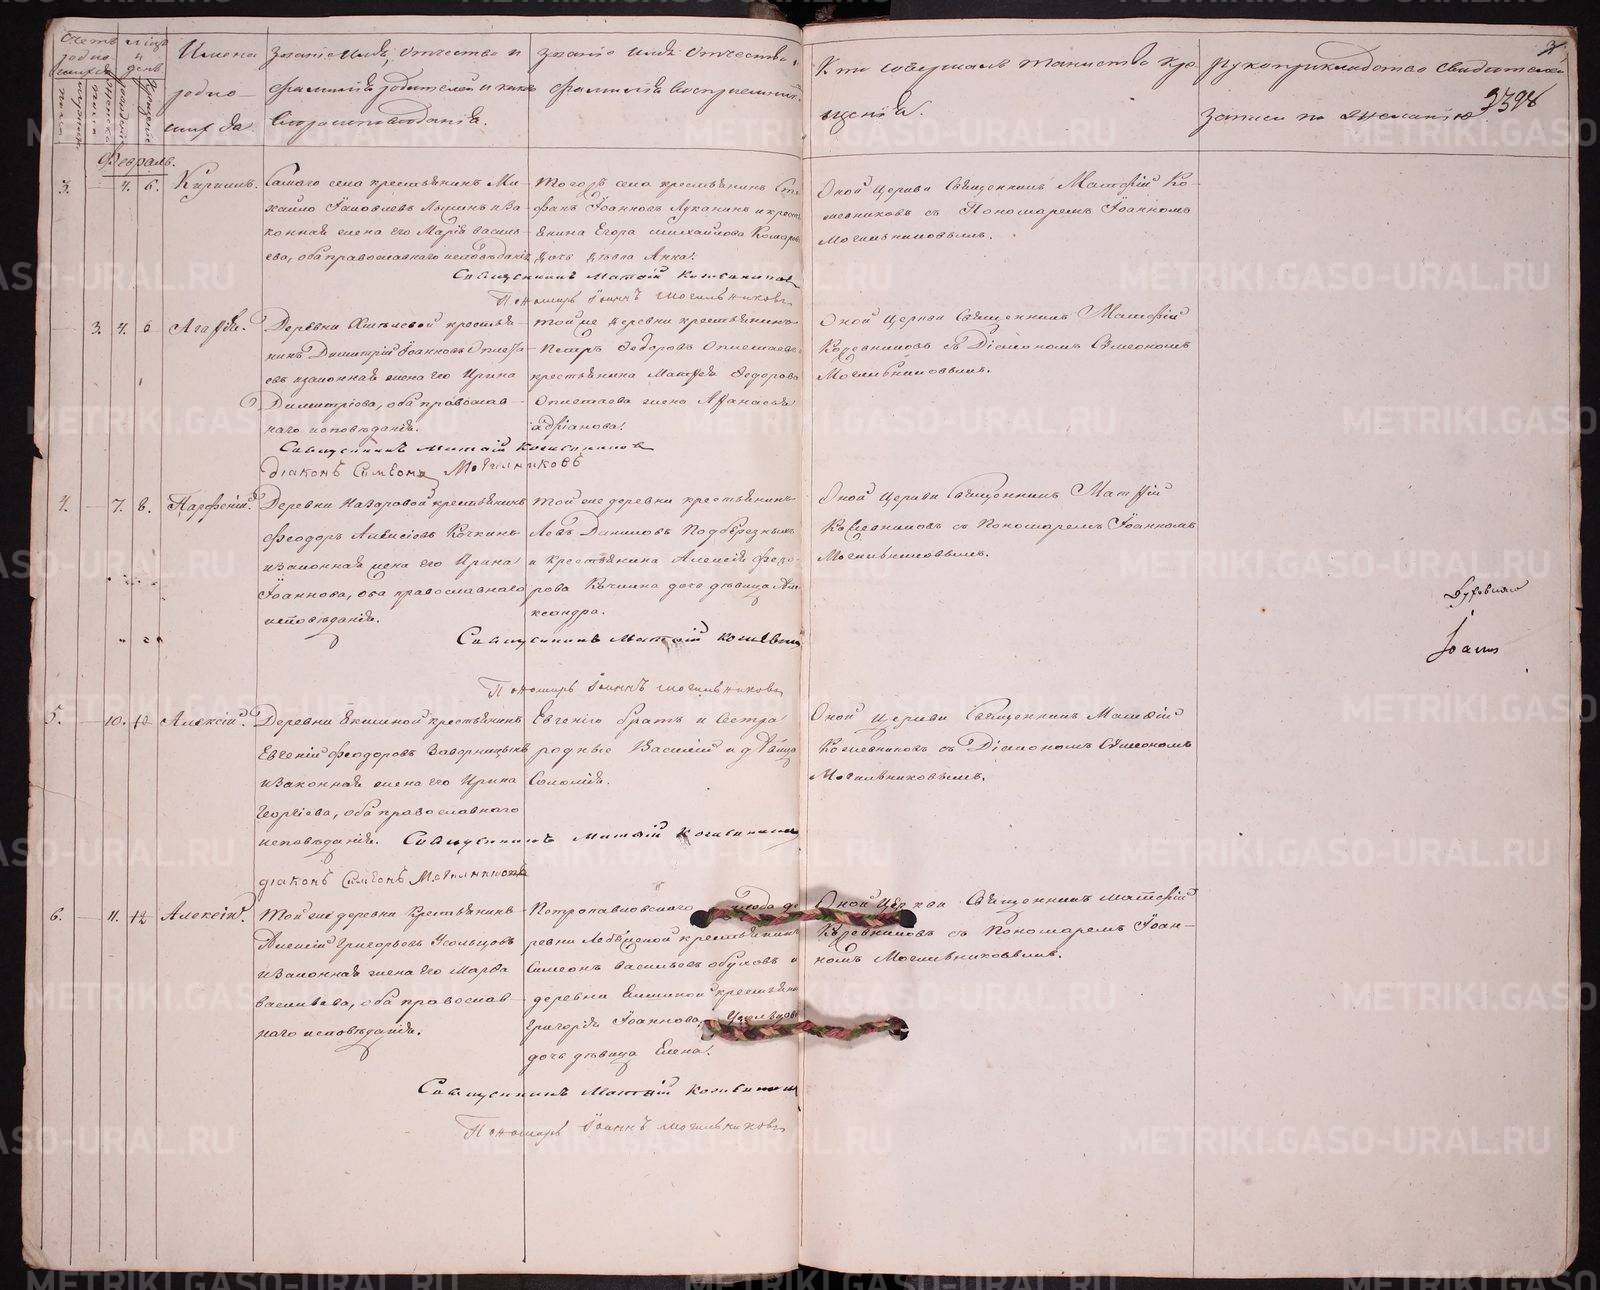 Счетъ родившихся
Мѣсяцъ и день
Имена родившихся.
Званіе имя, отчество и фамилія родителей и какого вѣроисповѣданія.
Званіе имя отчество и фамилія воспріемниковъ.
Кто совершалъ таинство крещенія.
Рукоприкладство свидѣтелей записи по желанію
2398
Февраль.
3. 4. 6. Кириллъ.
Самаго села крестьянинъ Ми-
хайло Іаковлевъ и за-
конная жена его Марія Василь-
ева, оба православнаго исповѣданія.
Тогожъ села крестьянинъ Сте-
фанъ Іоанновъ Луканинъ и кресть-
янина Егора Михайлова
дочь дѣвица Анна.
Оной Церкви Священникъ Матфій Ко-
жевниковъ съ Пономаремъ Іоанномъ
Могильниковымъ.
Священникъ Матфій Кожевниковъ
Пономарь Іоаннъ Могильниковъ
3. 4. 6 Агафія.
Деревни крестья-
нинъ Димитрій Іоанновъ Оплета-
евъ и законная жена его Ирина
Димитріева, оба православ-
наго исповѣданія.
Той же деревни крестьянинъ
Петръ Федоровъ Оплетаевъ
крестьянина Матфея Федорова
Оплетаева жена Афанасья
Адріанова.
Оной Церкви Священникъ Матфій
Кожевниковъ съ Діакономъ Симеономъ
Могильниковымъ.
Священникъ Матфій Кожевниковъ
Діаконъ Симеонъ Могильниковъ
4. 7. 8. Парфеній.
Деревни Назаровой крестьянинъ
Феодоръ Алексіевъ Кочкинъ
и законная жена его Ирина
Іоаннова, оба православнаго
исповѣданія.
Той же деревни крестьянинъ
Левъ Даниловъ
и крестьянина Алексія Федо-
рова Кочкина дочь дѣвица Але-
ксандра.
Оной Церкви Священникъ Матфій
Кожевниковъ съ Пономаремъ Іоанномъ
Могильниковымъ.
Священникъ Матфій Кожевни
Пономарь Іоаннъ Могильниковъ
Іоанн
5. 10. 12 Алексій.
Деревни крестьянинъ
Евгеній Феодоровъ
и законная жена его Ирина
Георгіева, оба православнаго
исповѣданія.
Евгенія братъ и сестра
родные Василій и дѣвица
Соломія.
Оной Церкви Священникъ Матфій
Кожевниковъ съ Діакономъ Симеономъ
Могильниковымъ.
Священникъ Матфій Кожевников
Діаконъ Симеонъ Могильниковъ
6. 11. 12 Алексій.
Той же деревни крестьянинъ
Алексій Григорьевъ Усольцовъ
и законная жена его Марѳа
Васильева, оба православ-
наго исповѣданія.
Петропавловского завода де-
ревни крестьянинъ
Симеонъ Васильевъ Обуховъ и
деревни крестьянина
Григорія Іоаннова Усольцова
дочь дѣвица Елена.
Оной Церкви Священникъ Матфій
Кожевниковъ съ Пономаремъ Іоан-
номъ Могильниковымъ.
Священникъ Матфій Кожевников
Пономарь Іоаннъ Могильниковъ
METRIKI.GASO-URAL.RU